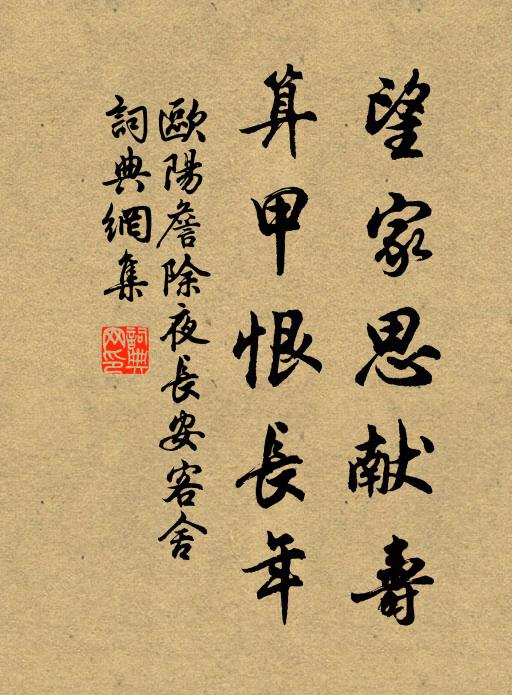 望家思献壽
算甲恨長年
歐陽詹除夜長安客舍
詞典網集
詞典网印